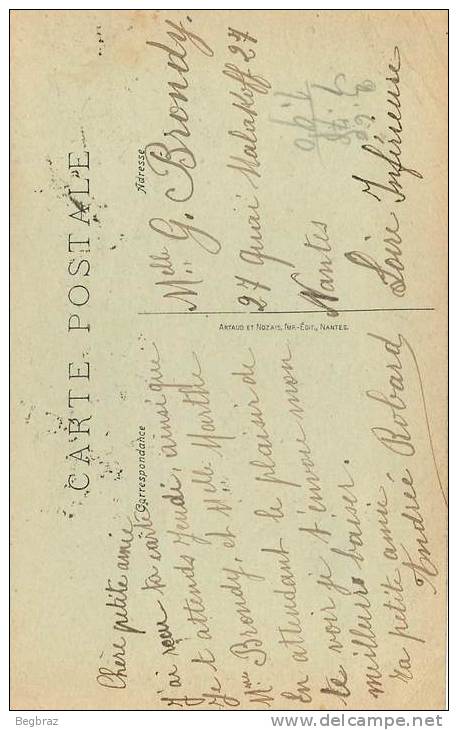 CARTE POSTALE
Correspondance
Adresse
Chère petite amie
J'ai reçu ta carte
Je t'attends Jeudi, ainsi que
Mme Brondy, et Melle Marthe
En attendant le plaisir de
te voir je t'envoie mon
meilleurs baiser.
ta petite amie
Andrée Robard
Melle G. Brondy.
27 Quai Malakoff 27
Nantes
Loire Inférieure
ARTAUD ET NOZAIS, IMP.-ÉDIT., NANTES.
Begbraz
http://www.delcampe.net